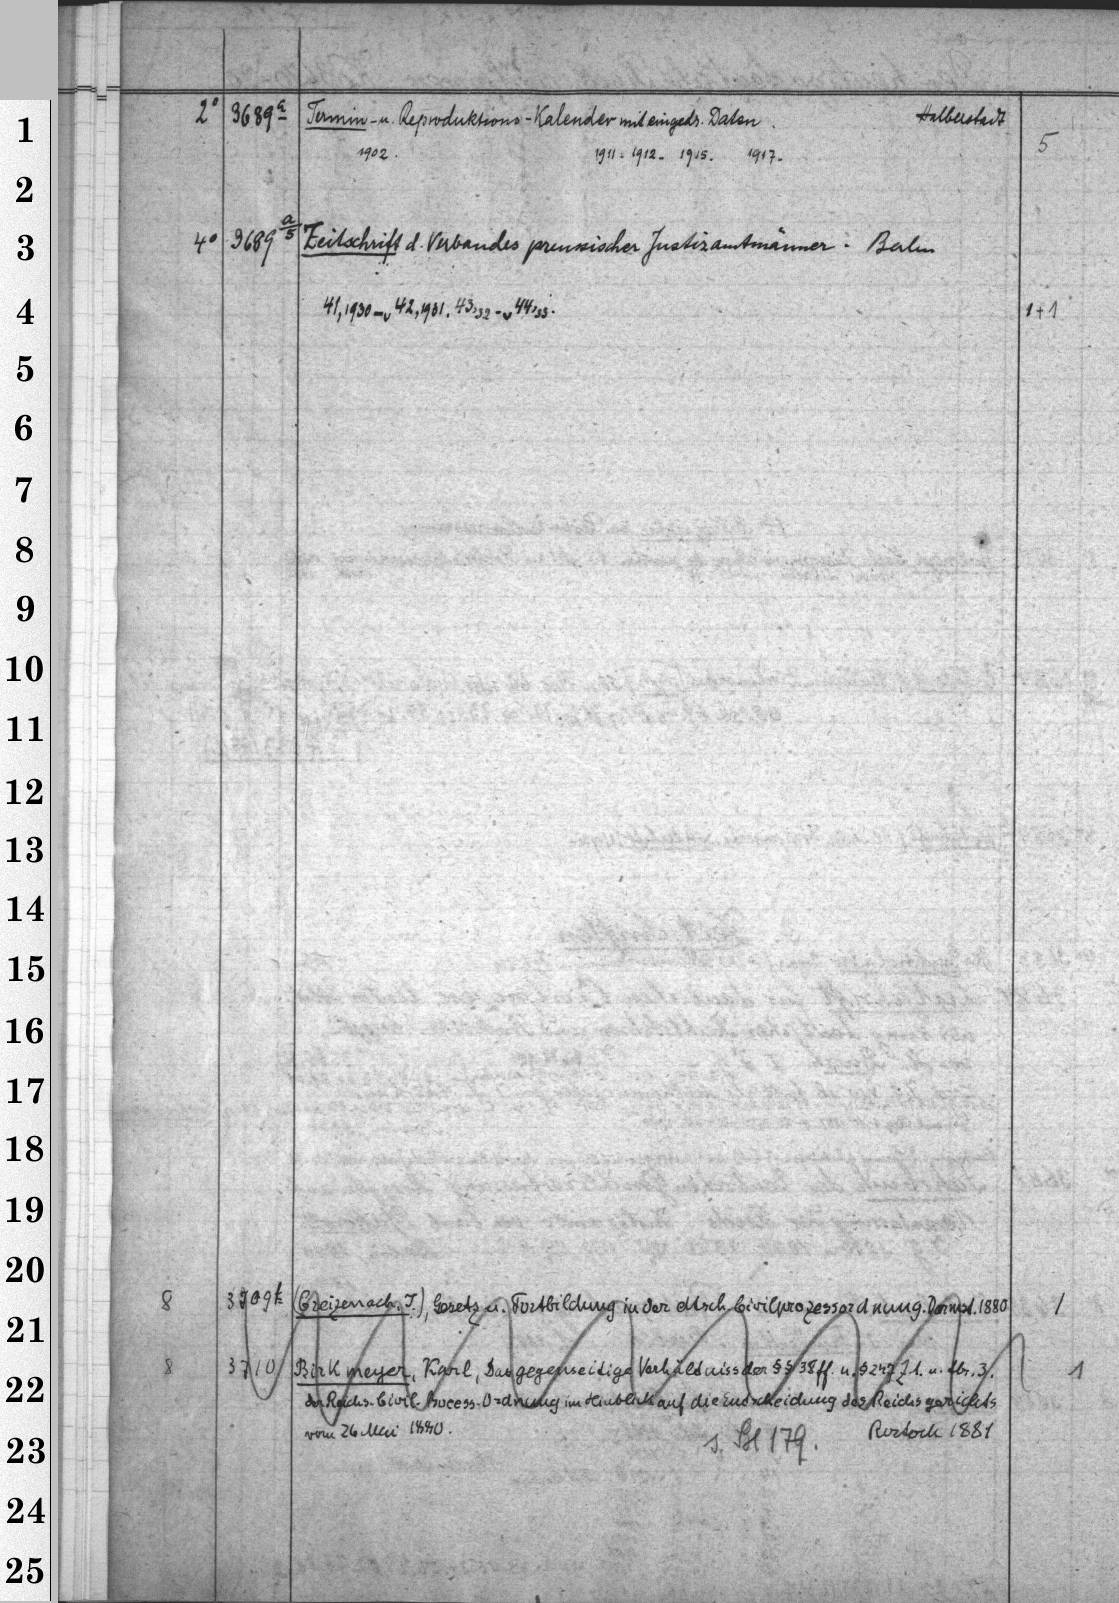 1 2° 3689a Termin- u. Reproduktions-Kalender mit eingedr. Daten. Halberstadt 5
1902. 1911. 1912- 1915. 1917-
2
3 4° 3689 a/5 Zeitschrift d. Verbandes preussischer Justizamtmänner. Berlin
4 41,1930-42,1931. 43,32-44,33. 1+1
5
6
7
8
9
10
11
12
13
14
15
16
17
18
19
20
8 3709k (Creizenach, T.), Gesetz u. Fortbildung in der dtsch. Civilprozessordnung. Darmst. 1880 1
21
22 8 3710 Birkmeyer, Karl, Das gegenseitige Verhältniss der §§ 38 ff. u. § 247 Z. 1. u. Abs. 3. 1
der Reichs-Civil-Process-Ordnung im Hinblick auf die Entscheidung des Reichsgerichts
vom 26 Mai 1880. Rostock 1881
23 s. Bl 179.
24
25